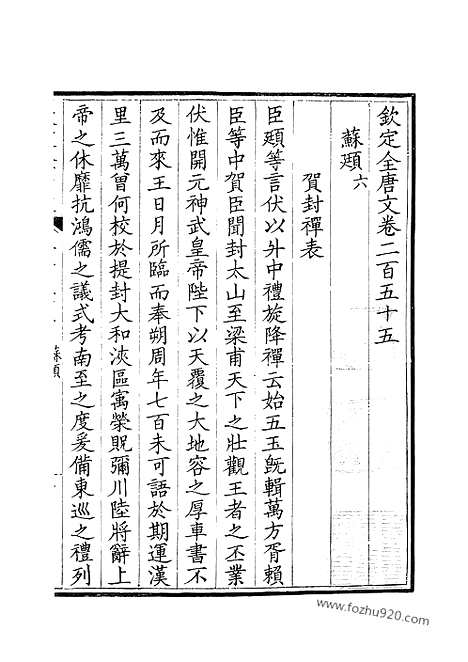 欽定全唐文卷二百五十五
蘇頲六
賀封禪表
臣頲等言伏以升中禮旋降禪云始五玉旣輯萬方胥賴
臣等中賀臣聞封太山至梁甫天下之壯觀王者之丕業
伏惟開元神武皇帝陛下以天覆之大地容之厚車書不
及而來王日月所臨而奉朔周年七百未可語於期運漢
里三萬曾何校於提封大和浹區寓榮貺彌川陸將辭上
帝之休靡抗鴻儒之議式考南至之度爰備東巡之禮列
蘇頲
www.fozhu920.com